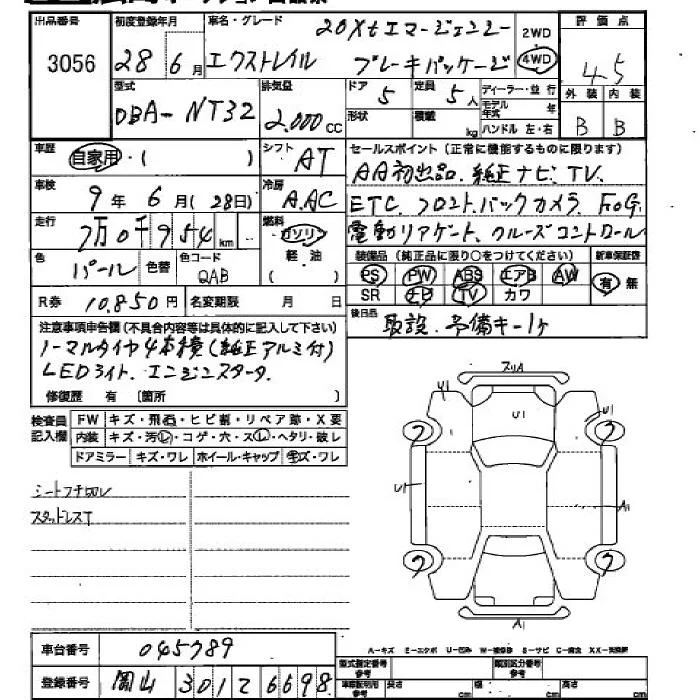 出品番号 初度登録年月 車名・グレード 20Xt エマージェンシー 2WD 評価点
3056 28 6月 エクストレイル ブレーキパッケージ 4WD 4.5
型式 排気量 ドア 定員 ディーラー・並行 外装 内装
DBA-NT32 2,000cc 5 5人 モデル年式 年
形状 積載 kg ハンドル 左・右 B B
車歴 自家用・( ) シフト AT セールスポイント(正常に機能するものに限ります)
AA初出品. 純正ナビ. TV.
車検 9年 6月(28日) 冷房 A.AC ETC. フロント.バックカメラ. FoG.
走行 7万0千954km 燃料 ガソリン 電動リアゲート、クルーズコントロール
軽油 ( )
色 パール 色替 色コード QAB 装備品(純正品に限り○をつけてください) 新車保証書
PS PW ABS エアB AW 有 無
SR ナビ TV カワ
R券 10,850円 名変期限 月 日 後日品 取説. 予備キー1ヶ
注意事項申告欄(不具合内容等は具体的に記入して下さい)
ノーマルタイヤ4本積(純正アルミ付)
LEDライト. エンジンスターター.
修復歴 有 〔箇所 〕
検査員記入欄 FW キズ・飛石・ヒビ割・リペア跡・X要
内装 キズ・汚レ・コゲ・穴・スレ・ヘタリ・破レ
ドアミラー キズ・ワレ ホイール・キャップ キズ・ワレ
シートフチ切レ
スタッドレスT
スリA
U1
U1
U1
U1
A1
A1
A-キズ E-エクボ U-凹み W-補修跡 S-サビ C-腐食 XX-交換歴
車台番号 045789
登録番号 岡山 301 て 6698
型式指定番号 参考 類別区分番号 参考
車検証明用 参考 長さ cm 幅 cm 高さ cm